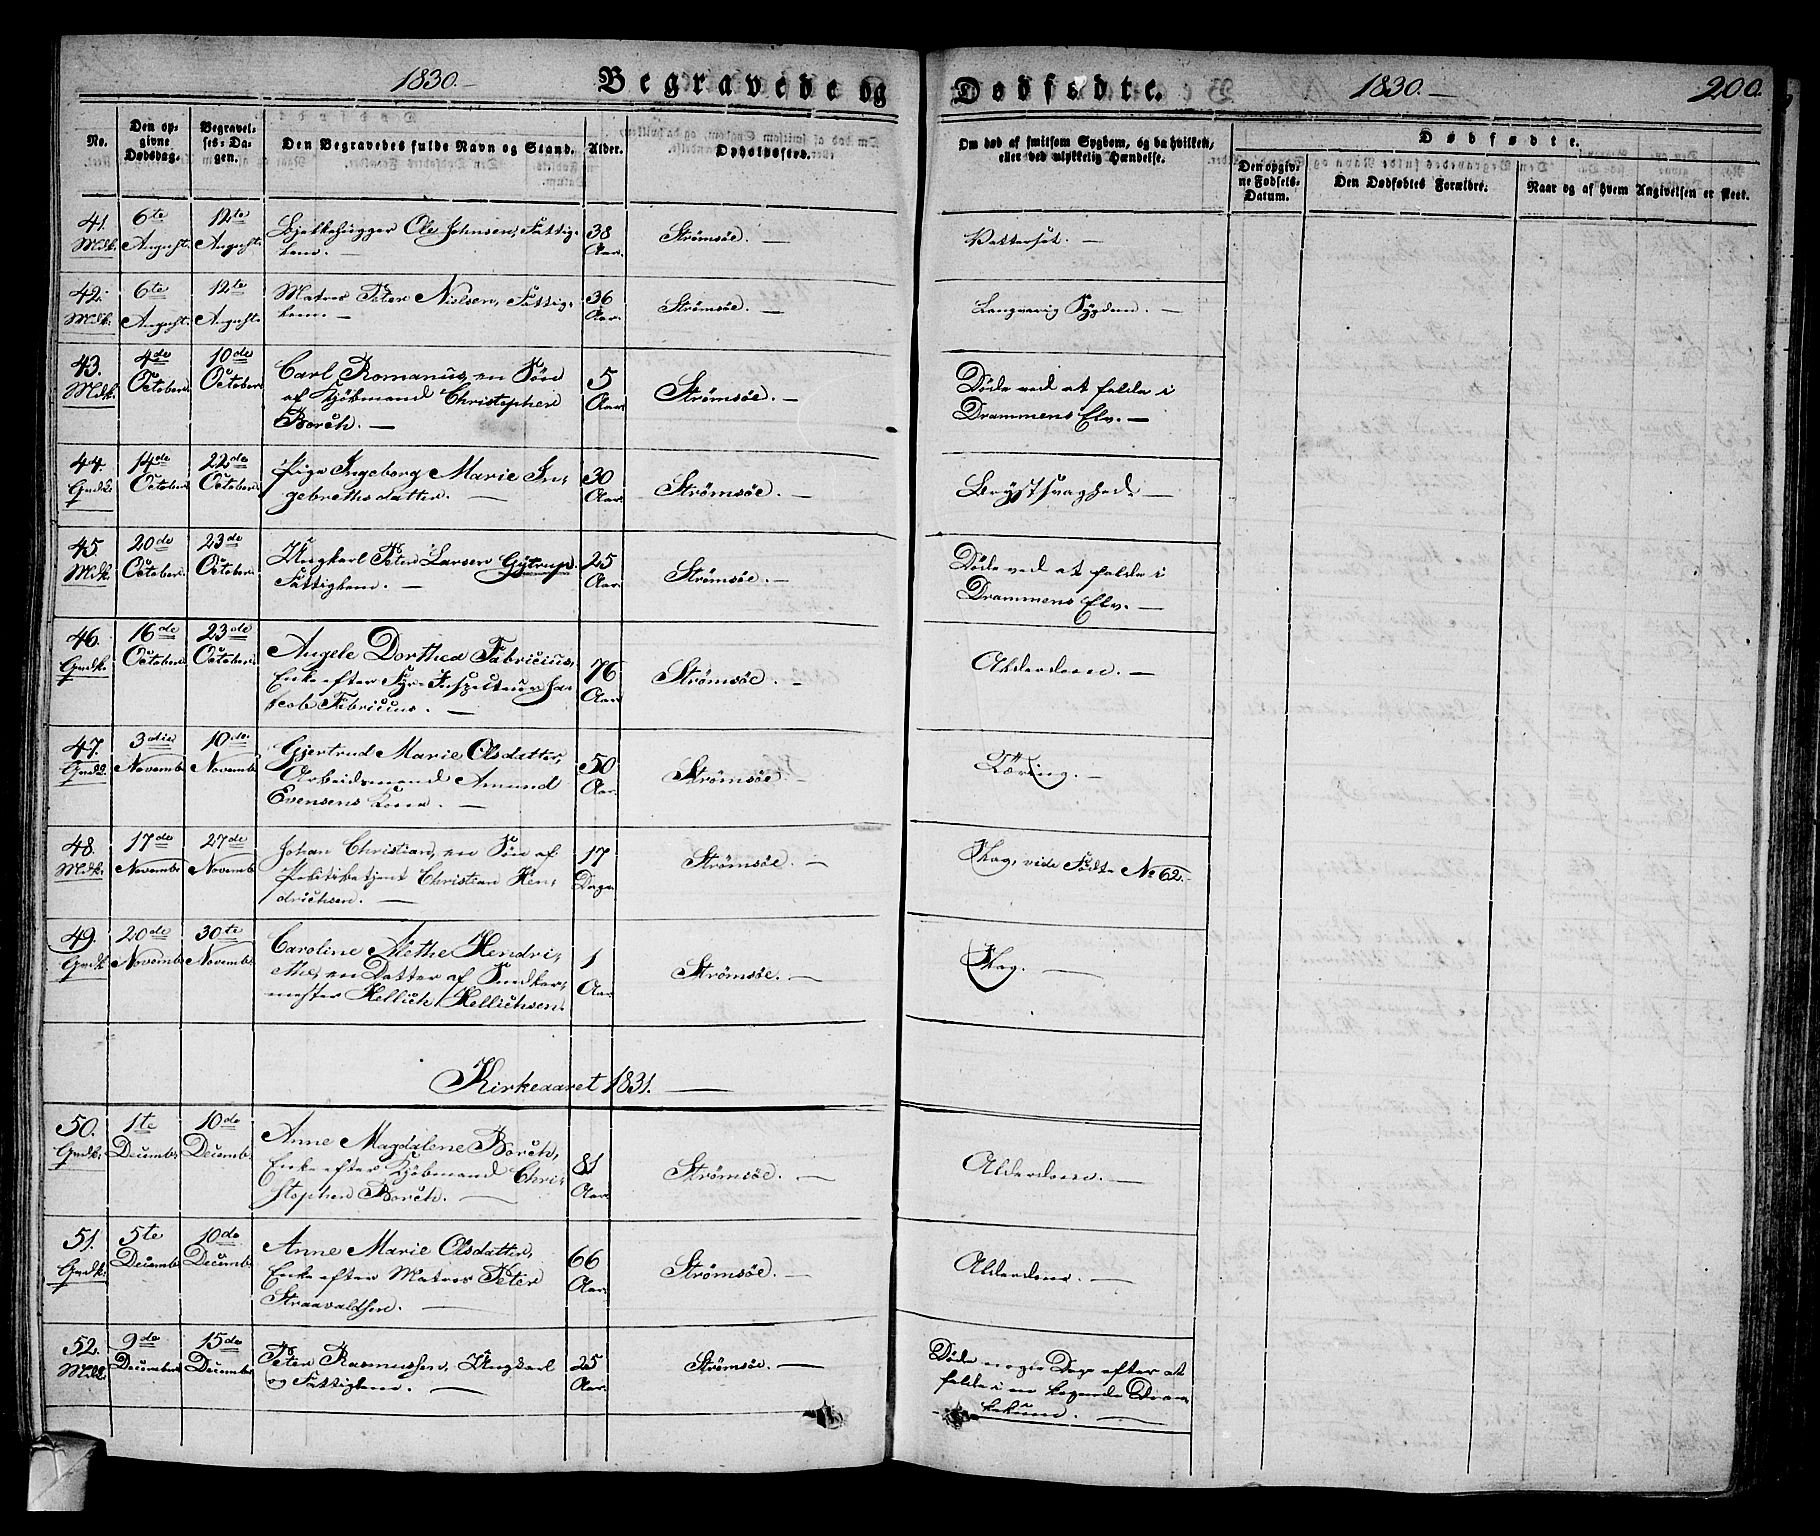 1830.—
Begravede og
Dødfødte.
1830.—
200.
No.
Den opgivne Dødsdag.
Begravelses-Dagen.
Den Begravedes fulde Navn og Stand.
Alder.
Opholdssted.
Om død af smitsom Sygdom, og da hvilken,
eller ved ulykkelig Hændelse.
Dødfødte.
Den opgivne Fødsels-Datum.
Den Dødfødtes Forældre.
Naar og af hvem Angivelsen er skeet.
41. Mdk. 6te August. 12te August. Bjelkehugger Ole Johnsen, Fattig-
lem. — 38 Aar. Strømsøe. — Vattersot. —
42. Mdk. 6te August. 12te August. Matros Peter Nielsen, Fattig-
lem. — 36 Aar. Strømsøe. — Langvarig Sygdom. —
43. Mdk. 4de October. 10de October. Carl Romanus, en Søn
af Kjøbmand Christopher
Borch. — 5 Aar. Strømsøe. — Døde ved at falde i
Drammens Elv. —
44. Qvdk. 14de October. 22de October. Pige Ingeborg Marie In-
gebrethsdatter. — 30 Aar. Strømsøe. — Brystsvaghed. —
45. Mdk. 20de October. 23de October. Ungkarl Peter Larsen Gytrup.
Fattiglem. — 25 Aar. Strømsøe. — Døde ved at falde i
Drammens Elv. —
46. Qvdk. 16de October. 23de October. Angele Dorthea Fabricius,
Enke efter Inspecteur Ja-
cob Fabricius. — 76 Aar. Strømsøe. — Alderdom. —
47. Qvdk. 3die Novembr. 10de Novembr. Gjertrud Marie Olsdatter,
Arbeidsmand Amund
Evensens Kone. — 50 Aar. Strømsøe. — Tæring. —
48. Mdk. 17de Novembr. 27de Novembr. Johan Christian, en Søn af
Politibetjent Christian Hen-
drichsen. — 17 Dage. Strømsøe. — Slag, vide Fødte No 62. —
49. Qvdk. 20de Novembr. 30te Novembr. Caroline Alethe Hendri-
che, en Datter af
mester Hellich Hellichsen. 1 Aar. Strømsøe. — Slag. —
Kirkeaaret 1831. —
50. Qvdk. 1te Decembr. 10de Decembr. Anne Magdalene Borch,
Enke efter Kjøbmand Chri-
stopher Borch. — 81 Aar. Strømsøe. — Alderdom. —
51. Qvdk. 5te Decembr. 10de Decembr. Anne Marie Olsdatter,
Enke efter Matros Peter
Straavaldsen. — 66 Aar. Strømsøe. — Alderdom. —
52. Mdk. 9de December 15de Decembr. Peter Rasmussen, Ungkarl
og Fattiglem. — 25 Aar. Strømsøe. — Døde nogle Dage efter at
falde i en kogende